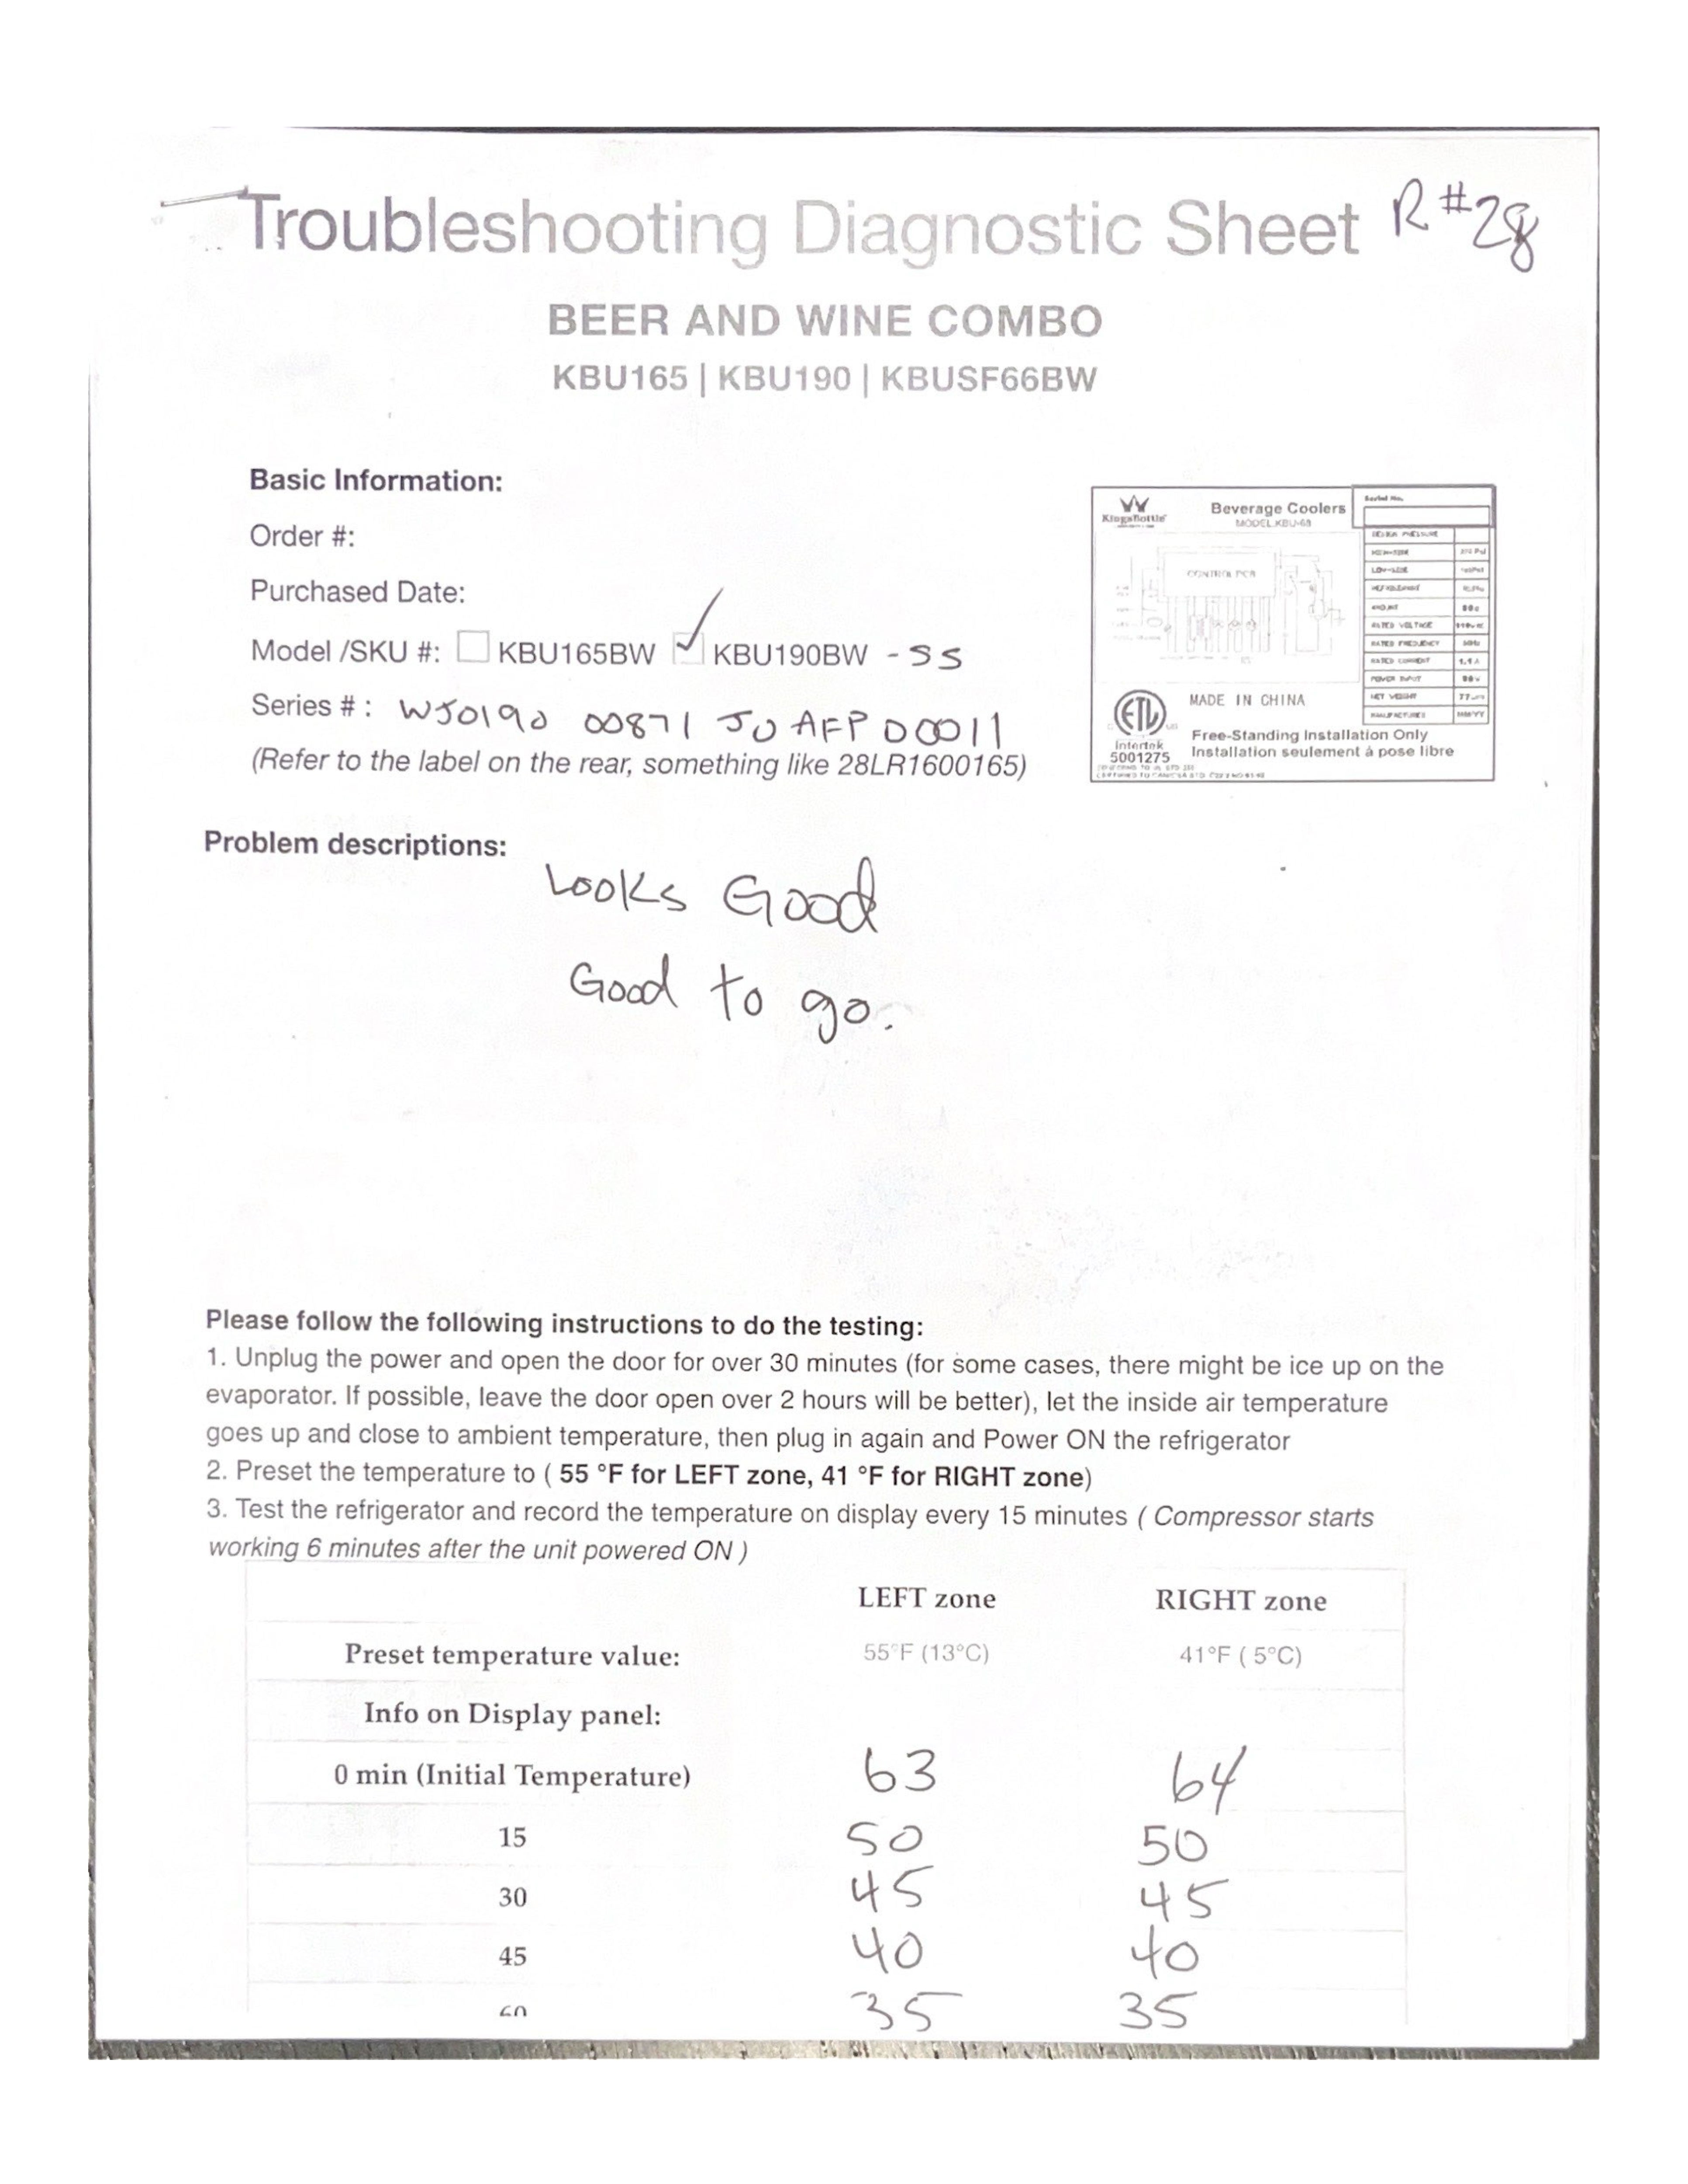 Troubleshooting Diagnostic Sheet R#28
BEER AND WINE COMBO
KBU165 | KBU190 | KBUSF66BW
Basic Information:
Order #:
Purchased Date:
Model /SKU #: KBU165BW KBU190BW - SS
Series # : WJ0190 00871 JO AFP D0011
(Refer to the label on the rear, something like 28LR1600165)
KingsBottle
Beverage Coolers
MODEL.KBU-68
Serial No.
CONTROL PCB
RATED VOLTAGE
RATED FREQUENCY
RATED CURRENT 1.1 A
POWER INPUT
NET WEIGHT
ETL
Intertek
5001275
MADE IN CHINA
Free-Standing Installation Only
Installation seulement á pose libre
Problem descriptions:
Looks Good
Good to go.
Please follow the following instructions to do the testing:
1. Unplug the power and open the door for over 30 minutes (for some cases, there might be ice up on the
evaporator. If possible, leave the door open over 2 hours will be better), let the inside air temperature
goes up and close to ambient temperature, then plug in again and Power ON the refrigerator
2. Preset the temperature to ( 55 °F for LEFT zone, 41 °F for RIGHT zone)
3. Test the refrigerator and record the temperature on display every 15 minutes ( Compressor starts
working 6 minutes after the unit powered ON )
LEFT zone RIGHT zone
Preset temperature value: 55°F (13°C) 41°F ( 5°C)
Info on Display panel:
0 min (Initial Temperature) 63 64
15 50 50
30 45 45
45 40 40
60 35 35